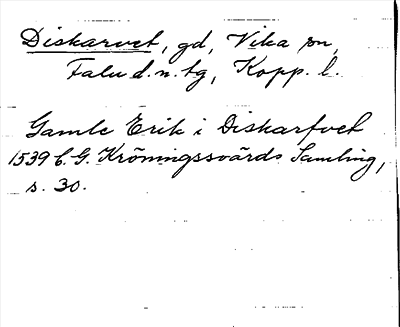 Diskarvet, gd, Vika sn,
Falu d. n. tg, Kopp. l.
Gamle Erik i Diskarfvet
1539 C. G. Kröningssvärds Samling,
s. 30.